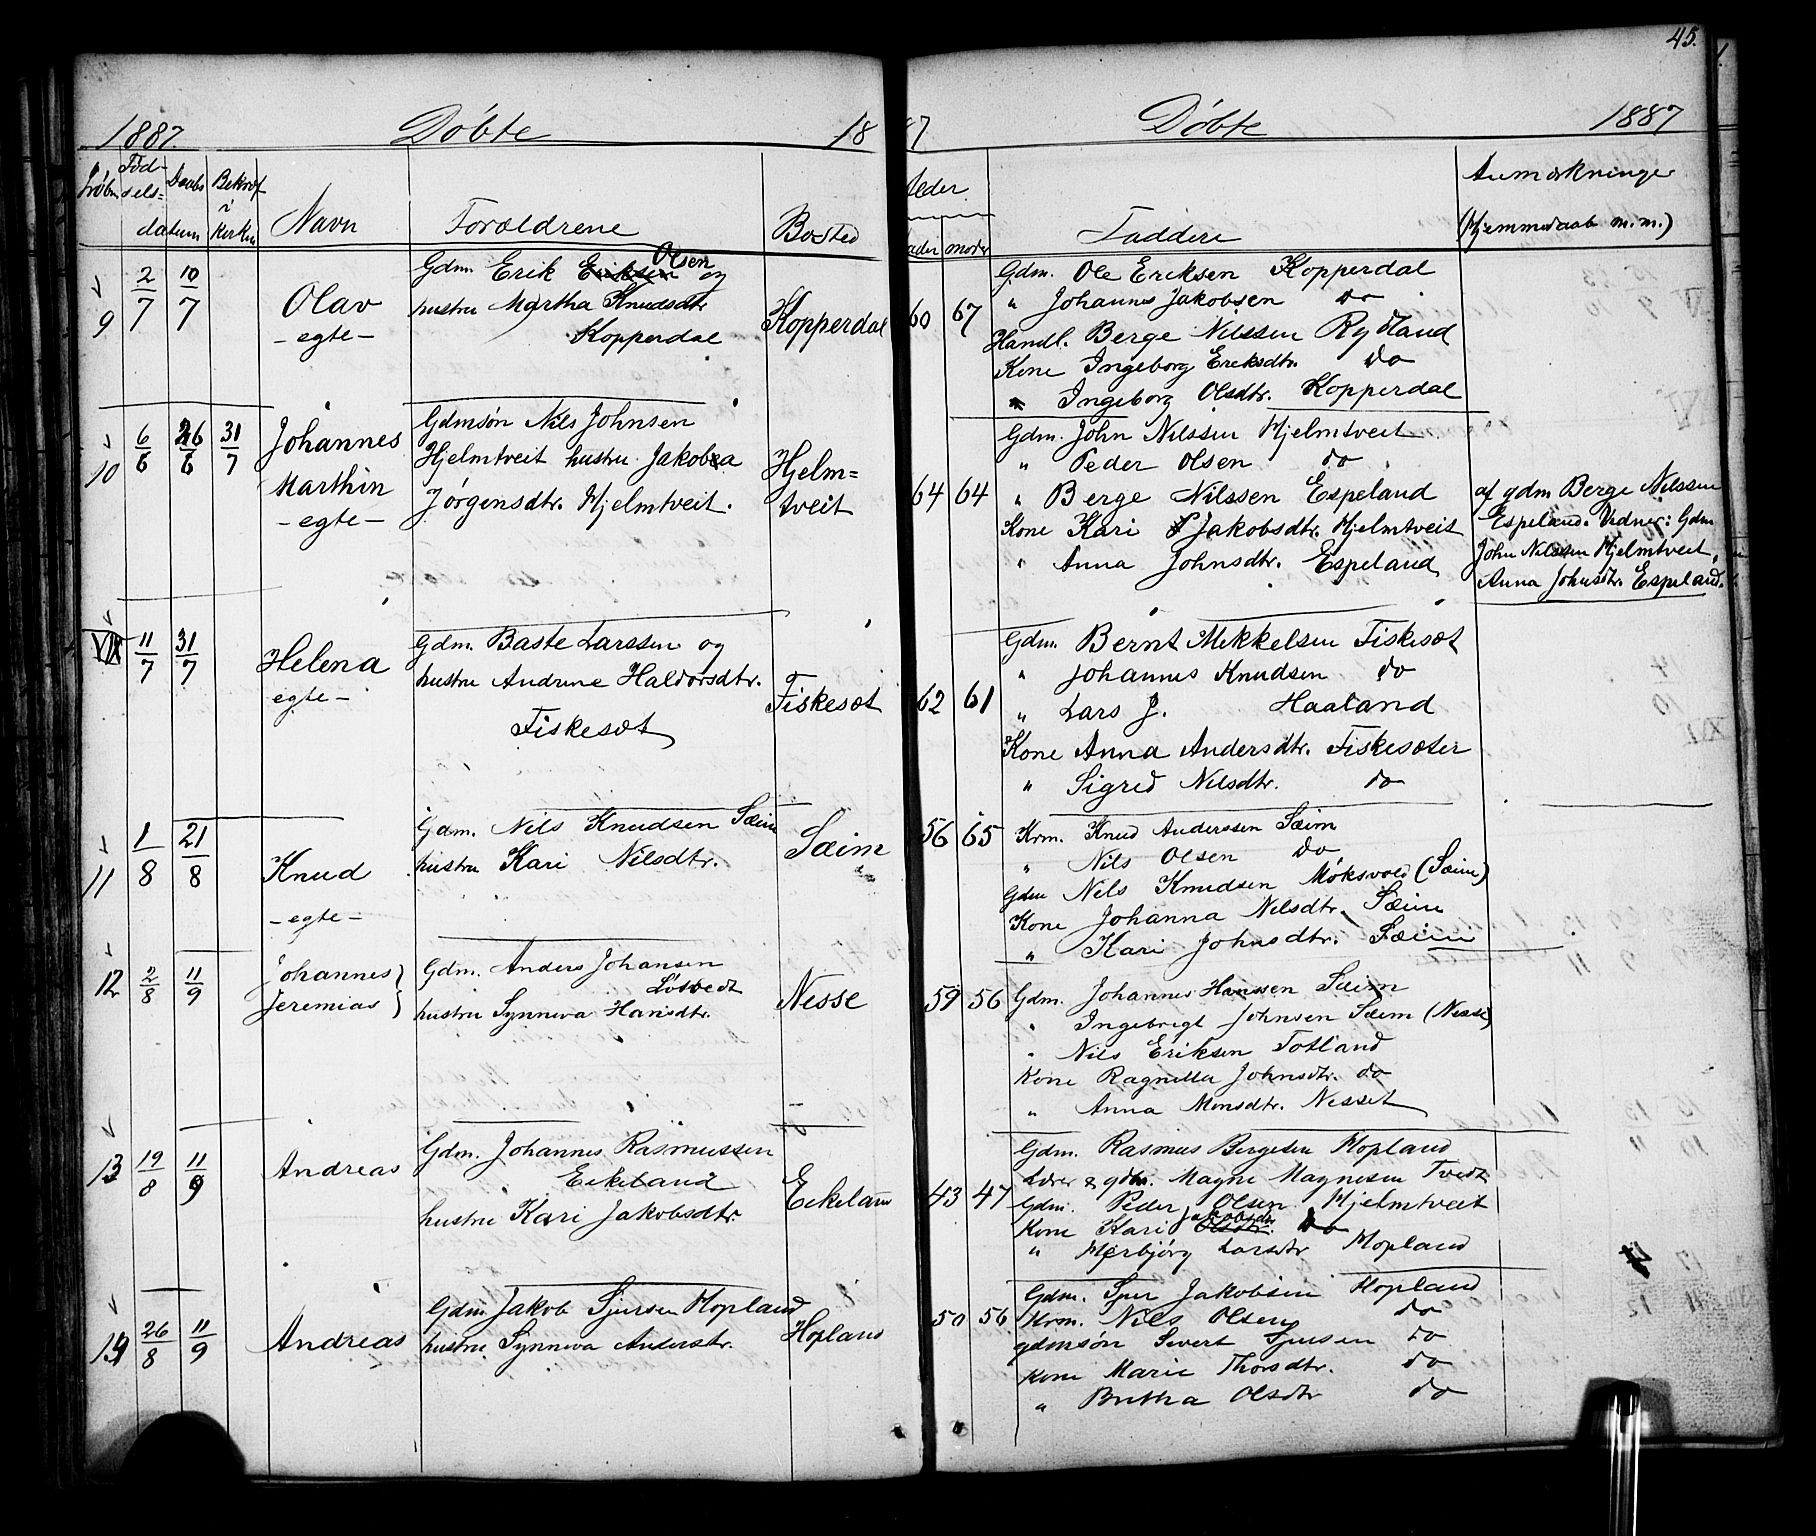 45.
1887 Døbte 18
87 Døbte 1887
Født-
sels- Daabs Bekræf
datum i
Kirken
Navn Forældrene Bosted
Alder
fader moder
Faddere
Anmærkninger
(Hjemmedaab m.m.)
9 2/7 10/7
Olav
- egte -
Gdm. Erik Eriksen Olsen og
hustru Martha Knudsdtr.
Kopperdal
Kopperdal
60 67
Gdm. Ole Eriksen Kopperdal
" Johannes Jakobsen do
Handl. Berge Nilssen Rydland
Kone Ingeborg Eriksdtr. do
" Ingeborg Olsdtr. Kopperdal
10 6/6 26/6 31/7
Johannes
Marthin
- egte -
Gdmsøn Nils Johnsen
Hjelmtveit hustru Jakoba
Jørgensdtr. Hjelmtveit.
Hjelm=
tveit
64 64
Gdm. John Nilssen Hjelmtveit
" Peder Olsen do
" Berge Nilssen Espeland
Kone Kari Jakobsdtr. Hjelmtveit
" Anna Johnsdtr. Espeland
af gdm Berge Nilssen
Espeland. Vidner: Gdm
John Nilssen Hjelmtveit,
Anna Johnsdtr. Espeland.
11/7 31/7
Helena
egte -
Gdm. Baste Larssen og
hustru Andrine Haldorsdtr.
Fiskesæt
Fiskesæt
62 61
Gdm. Bernt Mikkelsen Fiskesæt
" Johannes Knudsen do
" Lars J. Haaland
Kone Anna Andersdtr. Fiskesæter
" Sigrid Nilsdtr. do
11 1/8 21/8
Knud
- egte -
Gdm. Nils Knudsen Sæim
hustru Kari Nilsdtr.
Sæim
56 65
Krm. Knud Anderssen Sæim
" Nils Olsen do
Gdm Nils Knudsen Møksvold (Sæim)
Kone Johanna Nilsdtr. Sæim
" Kari Johnsdtr. Sæim
12 2/8 11/9
Johannes
Jeremias
Gdm. Anders Johansen
Løtvedt
hustru Synneva Hansdtr.
Nesse
59 56
Gdm. Johannes Hanssen Sæim
" Ingebrigt Johnsen Sæim (Nesse)
" Nils Eriksen Totland
Kone Ragnilla Johnsdtr. do
" Anna Monsdtr. Nesset
13 19/8 11/9
Andreas
Gdm. Johannes Rasmussen
Eikeland
hustru Kari Jakobsdtr.
Eikeland
43 47
Gdm. Rasmus Bergesen Hopland
Lærer & gdm. Magne Magnesen Tvedt
Gdm. Peder Olsen Hjelmtveit
Kone Kari Olsdtr. Jakobsdtr do
" Herbjørg Larsdtr Hopland
14 26/8 11/9
Andreas
Gdm Jakob Sjursen Hopland
hustru Synneva Anderstr.
Hopland
50 56
Gdm. Sjur Jakobsen Hopland
Krm. Nils Olsen do
gdmsøn Sivert Sjursen do
Kone Marie Thorsdtr. do
" Britha Olsdtr do